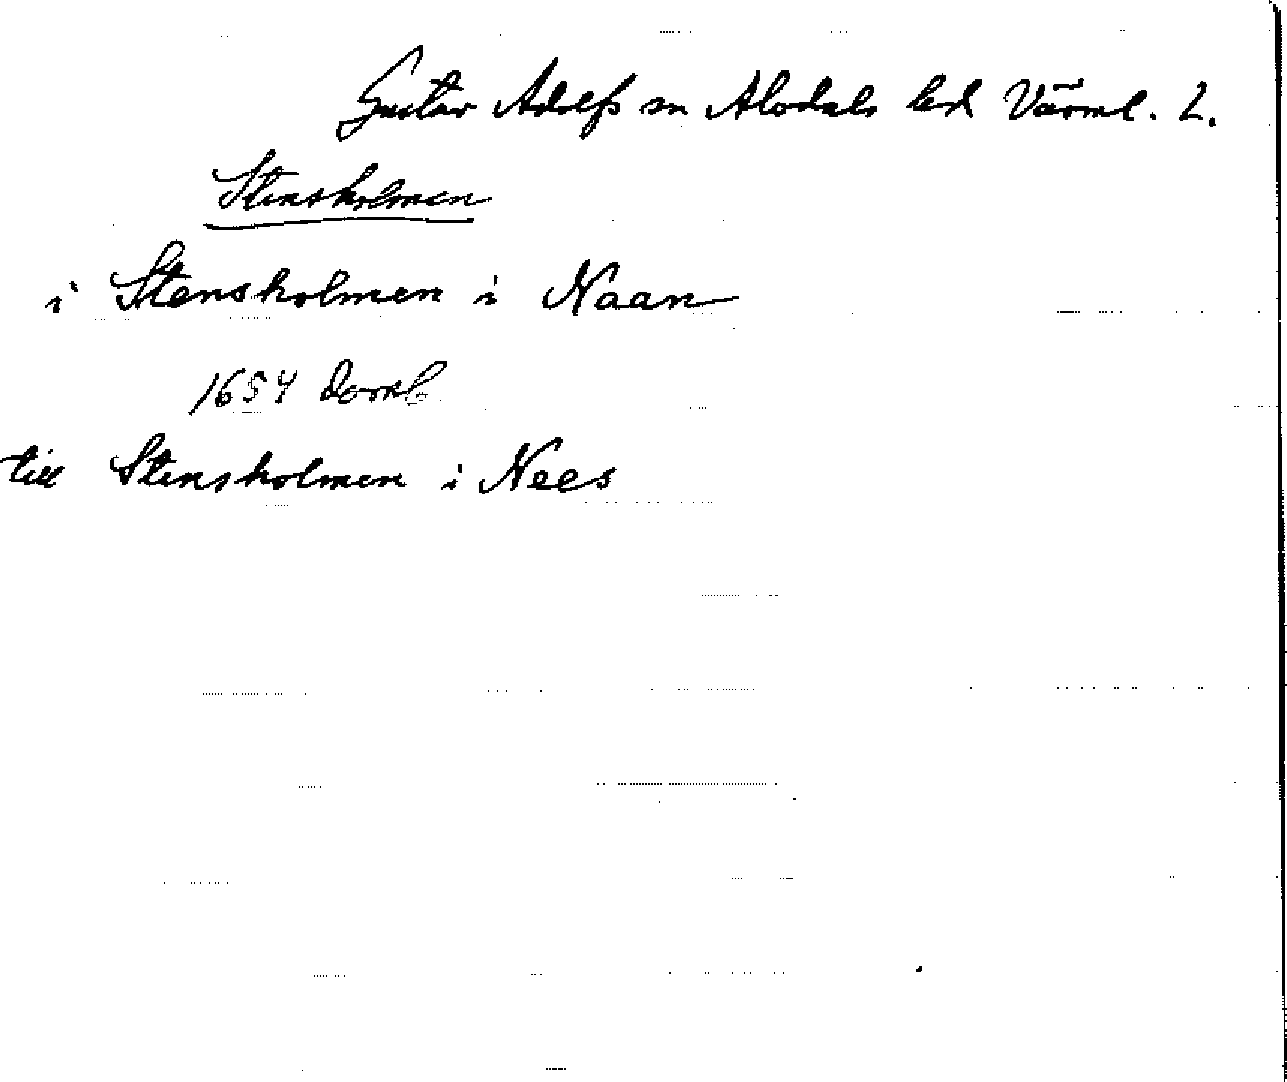 Gustav Adolfs sn Älvdals hd Värml. L.
Stensholmen
i Stensholmen i Naan
1654 Domb
till Stensholmen i Nees